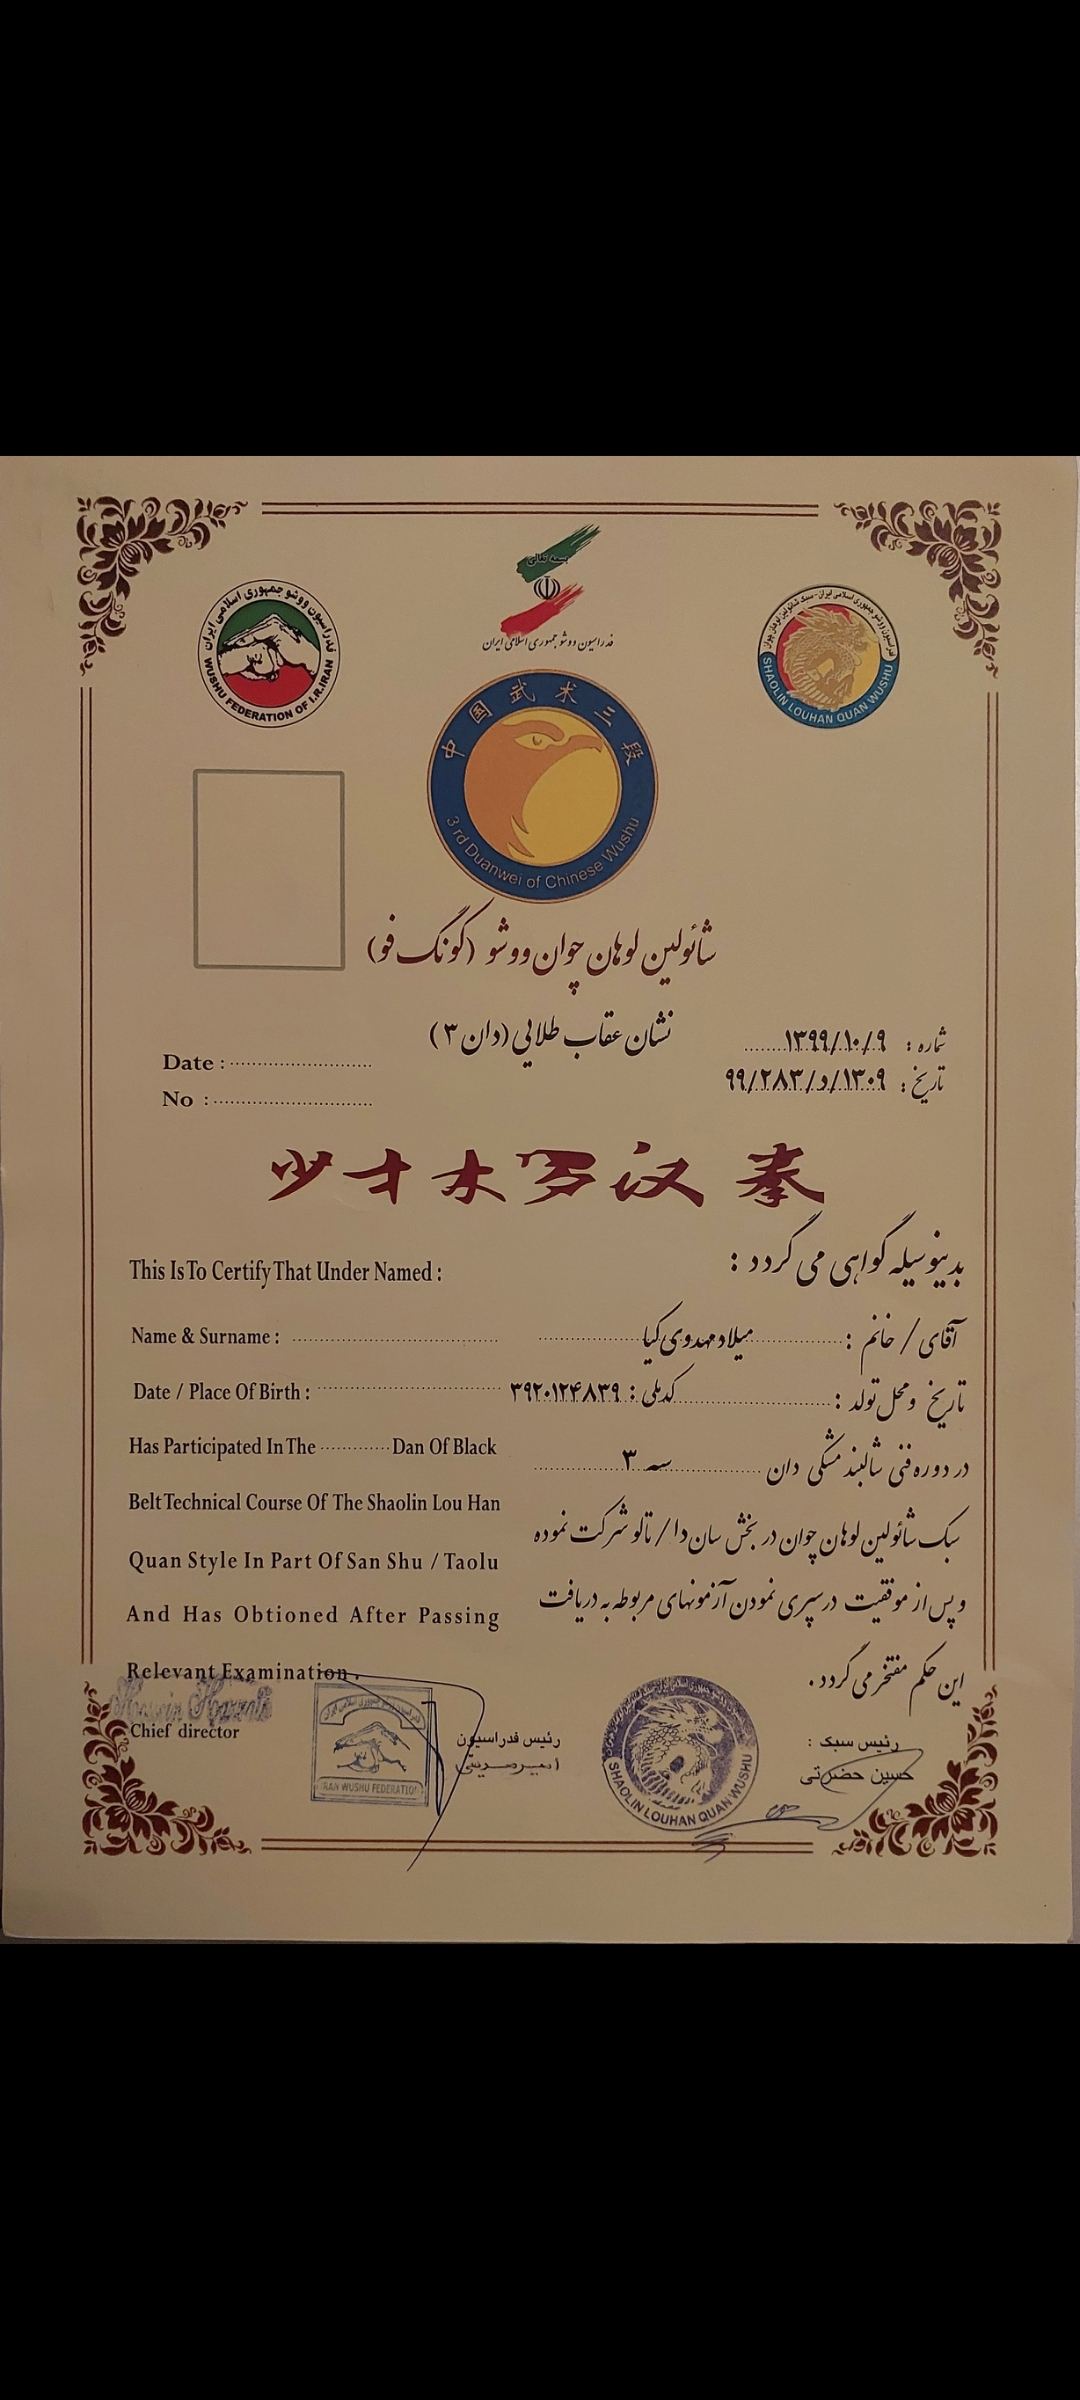 بسمه تعالی
فدراسیون ووشو جمهوری اسلامی ایران
فدراسیون ووشو جمهوری اسلامی ایران
WUSHU FEDERATION OF I.R.IRAN
فدراسیون ووشو جمهوری اسلامی ایران - سبک شائولین لوهان چوان
SHAOLIN LOUHAN QUAN WUSHU
中国武术三段
3 rd Duanwei of Chinese Wushu
شائولین لوهان چوان ووشو (گونگ فو)
نشان عقاب طلایی (دان ۳)
شماره : ۱۳۹۹/۱۰/۹
تاریخ : ۹۹/۲۸۳/د/۱۳۰۹
Date :
No :
少才木罗汉拳
بدینوسیله گواهی می گردد :
This Is To Certify That Under Named :
آقای / خانم : میلاد مهدوی کیا
Name & Surname :
تاریخ ومحل تولد : کدملی : ۳۹۲۰۱۲۴۸۳۹
Date / Place Of Birth :
در دوره فنی شالبند مشکی دان سه ۳
Has Participated In The Dan Of Black
سبک شائولین لوهان چوان در بخش سان دا / تالو شرکت نموده
Belt Technical Course Of The Shaolin Lou Han
Quan Style In Part Of San Shu / Taolu
و پس از موفقیت درسپری نمودن آزمونهای مربوطه به دریافت
And Has Obtioned After Passing
این حکم مفتخر می گردد .
Relevant Examination .
Chief director
رئیس فدراسیون
فدراسیون ووشو جمهوری اسلامی ایران
IRAN WUSHU FEDERATION
SHAOLIN LOUHAN QUAN WUSHU
رئیس سبک :
حسین حضرتی